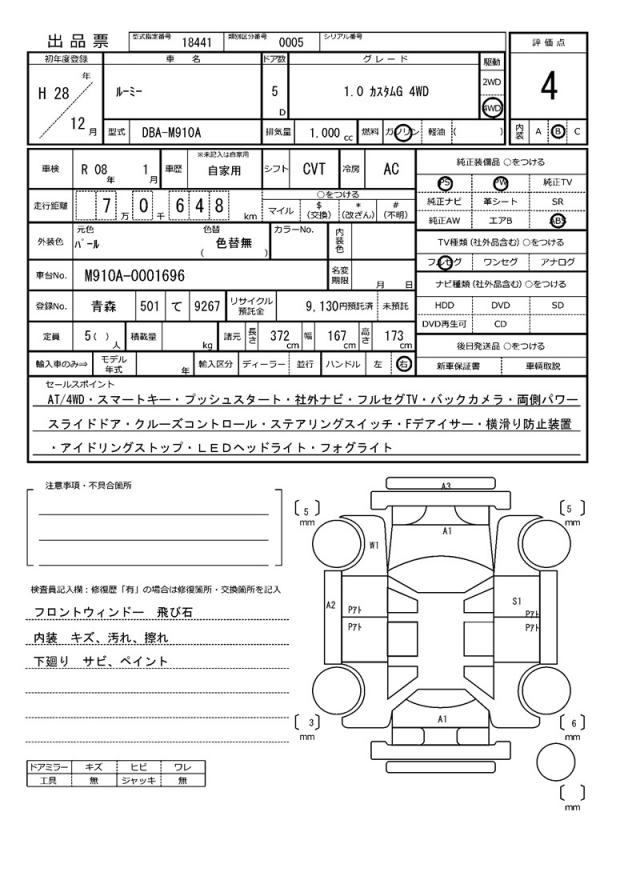 出品票 型式指定番号 18441 類別区分番号 0005 シリアル番号
評価点
初年度登録 車名 ドア数 グレード 駆動
H 28 年 12 月 ルーミー 5 D 1.0 カスタムG 4WD 2WD 4WD
4
型式 DBA-M910A 排気量 1,000 cc 燃料 ガソリン 軽油 ( ) 内装 A B C
車検 R 08 年 1 月 車歴 ※未記入は自家用 自家用 シフト CVT 冷房 AC
走行距離 7 万 0 千 6 4 8 km ○をつける マイル $ (交換) * (改ざん) # (不明)
外装色 元色 パール 色替 色替無 ( ) カラーNo. 内装色
車台No. M910A-0001696 名変期限 月 日
登録No. 青森 501 て 9267 リサイクル預託金 9,130円預託済 未預託
定員 5( ) 人 積載量 kg 諸元 長さ 372 cm 幅 167 cm 高さ 173 cm
輸入車のみ⇒ モデル年式 年 輸入区分 ディーラー 並行 ハンドル 左 右
純正装備品 ○をつける
PS PW 純正TV
純正ナビ 革シート SR
純正AW エアB ABS
TV種類 (社外品含む) ○をつける
フルセグ ワンセグ アナログ
ナビ種類 (社外品含む) ○をつける
HDD DVD SD
DVD再生可 CD
後日発送品 ○をつける
新車保証書 車輌取説
セールスポイント
AT/4WD・スマートキー・プッシュスタート・社外ナビ・フルセグTV・バックカメラ・両側パワー
スライドドア・クルーズコントロール・ステアリングスイッチ・Fデアイサー・横滑り防止装置
・アイドリングストップ・ＬＥＤヘッドライト・フォグライト
注意事項・不具合箇所
検査員記入欄：修復歴「有」の場合は修復箇所・交換箇所を記入
フロントウィンドー 飛び石
内装 キズ、汚れ、擦れ
下廻り サビ、ペイント
ドアミラー キズ ヒビ ワレ
工具 無 ジャッキ 無
A3
〔 5 〕 mm 〔 5 〕 mm
A1
W1
A2 Pｱﾄ S1 Pｱﾄ
Pｱﾄ Pｱﾄ
A1
〔 3 〕 mm 〔 6 〕 mm
〔 〕 mm